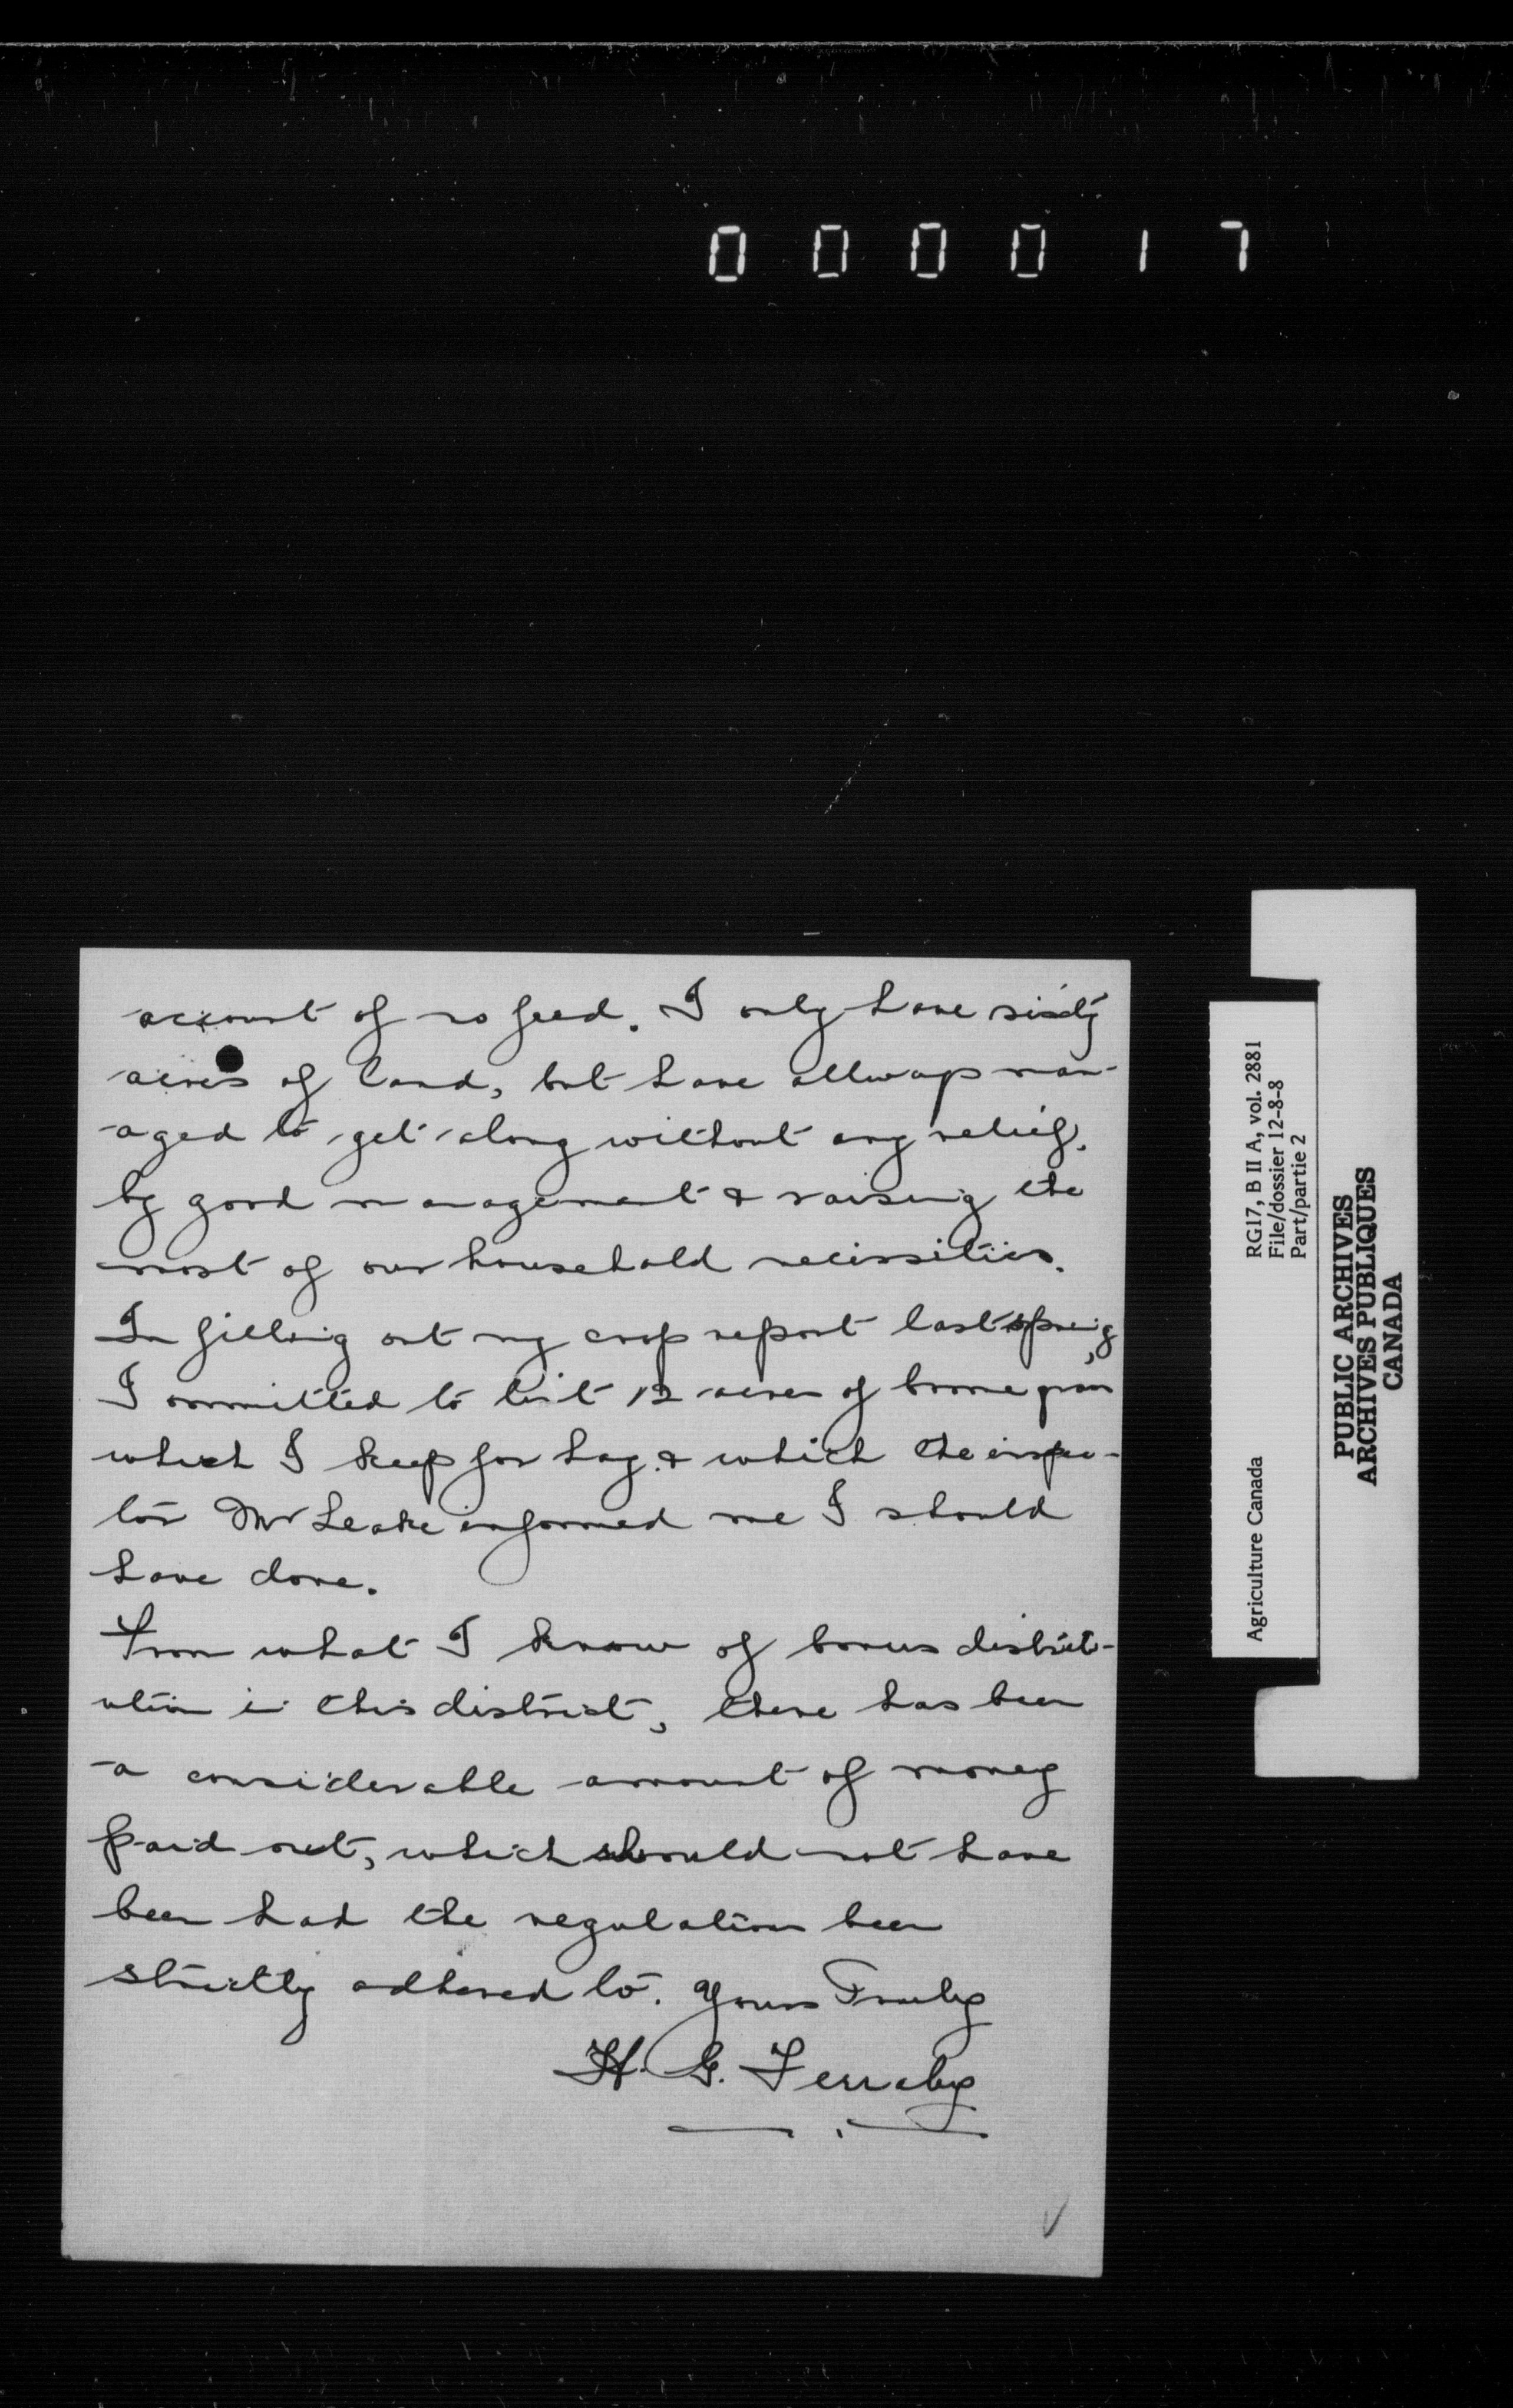 000017
account of no feed. I only have sixty
acres of land, but have allways man-
aged to get along without any relief.
by good management & raising the
most of our household necissities.
In filling out my crop report last spring,
I ommitted to list 12 acres of brome grass
which I keep for hay. & which the inspec-
tor Mr Leake informed me I should
have done.
From what I know of bonus distrib-
ution in this district, there has been
a considerable amount of money
paid out, which should not have
been had the regulations been
strictly adhered to. Yours Truly
H. G. Ferraby
RG17, B II A, vol. 2881
File/dossier 12-8-8
Part/partie 2
Agriculture Canada
PUBLIC ARCHIVES
ARCHIVES PUBLIQUES
CANADA